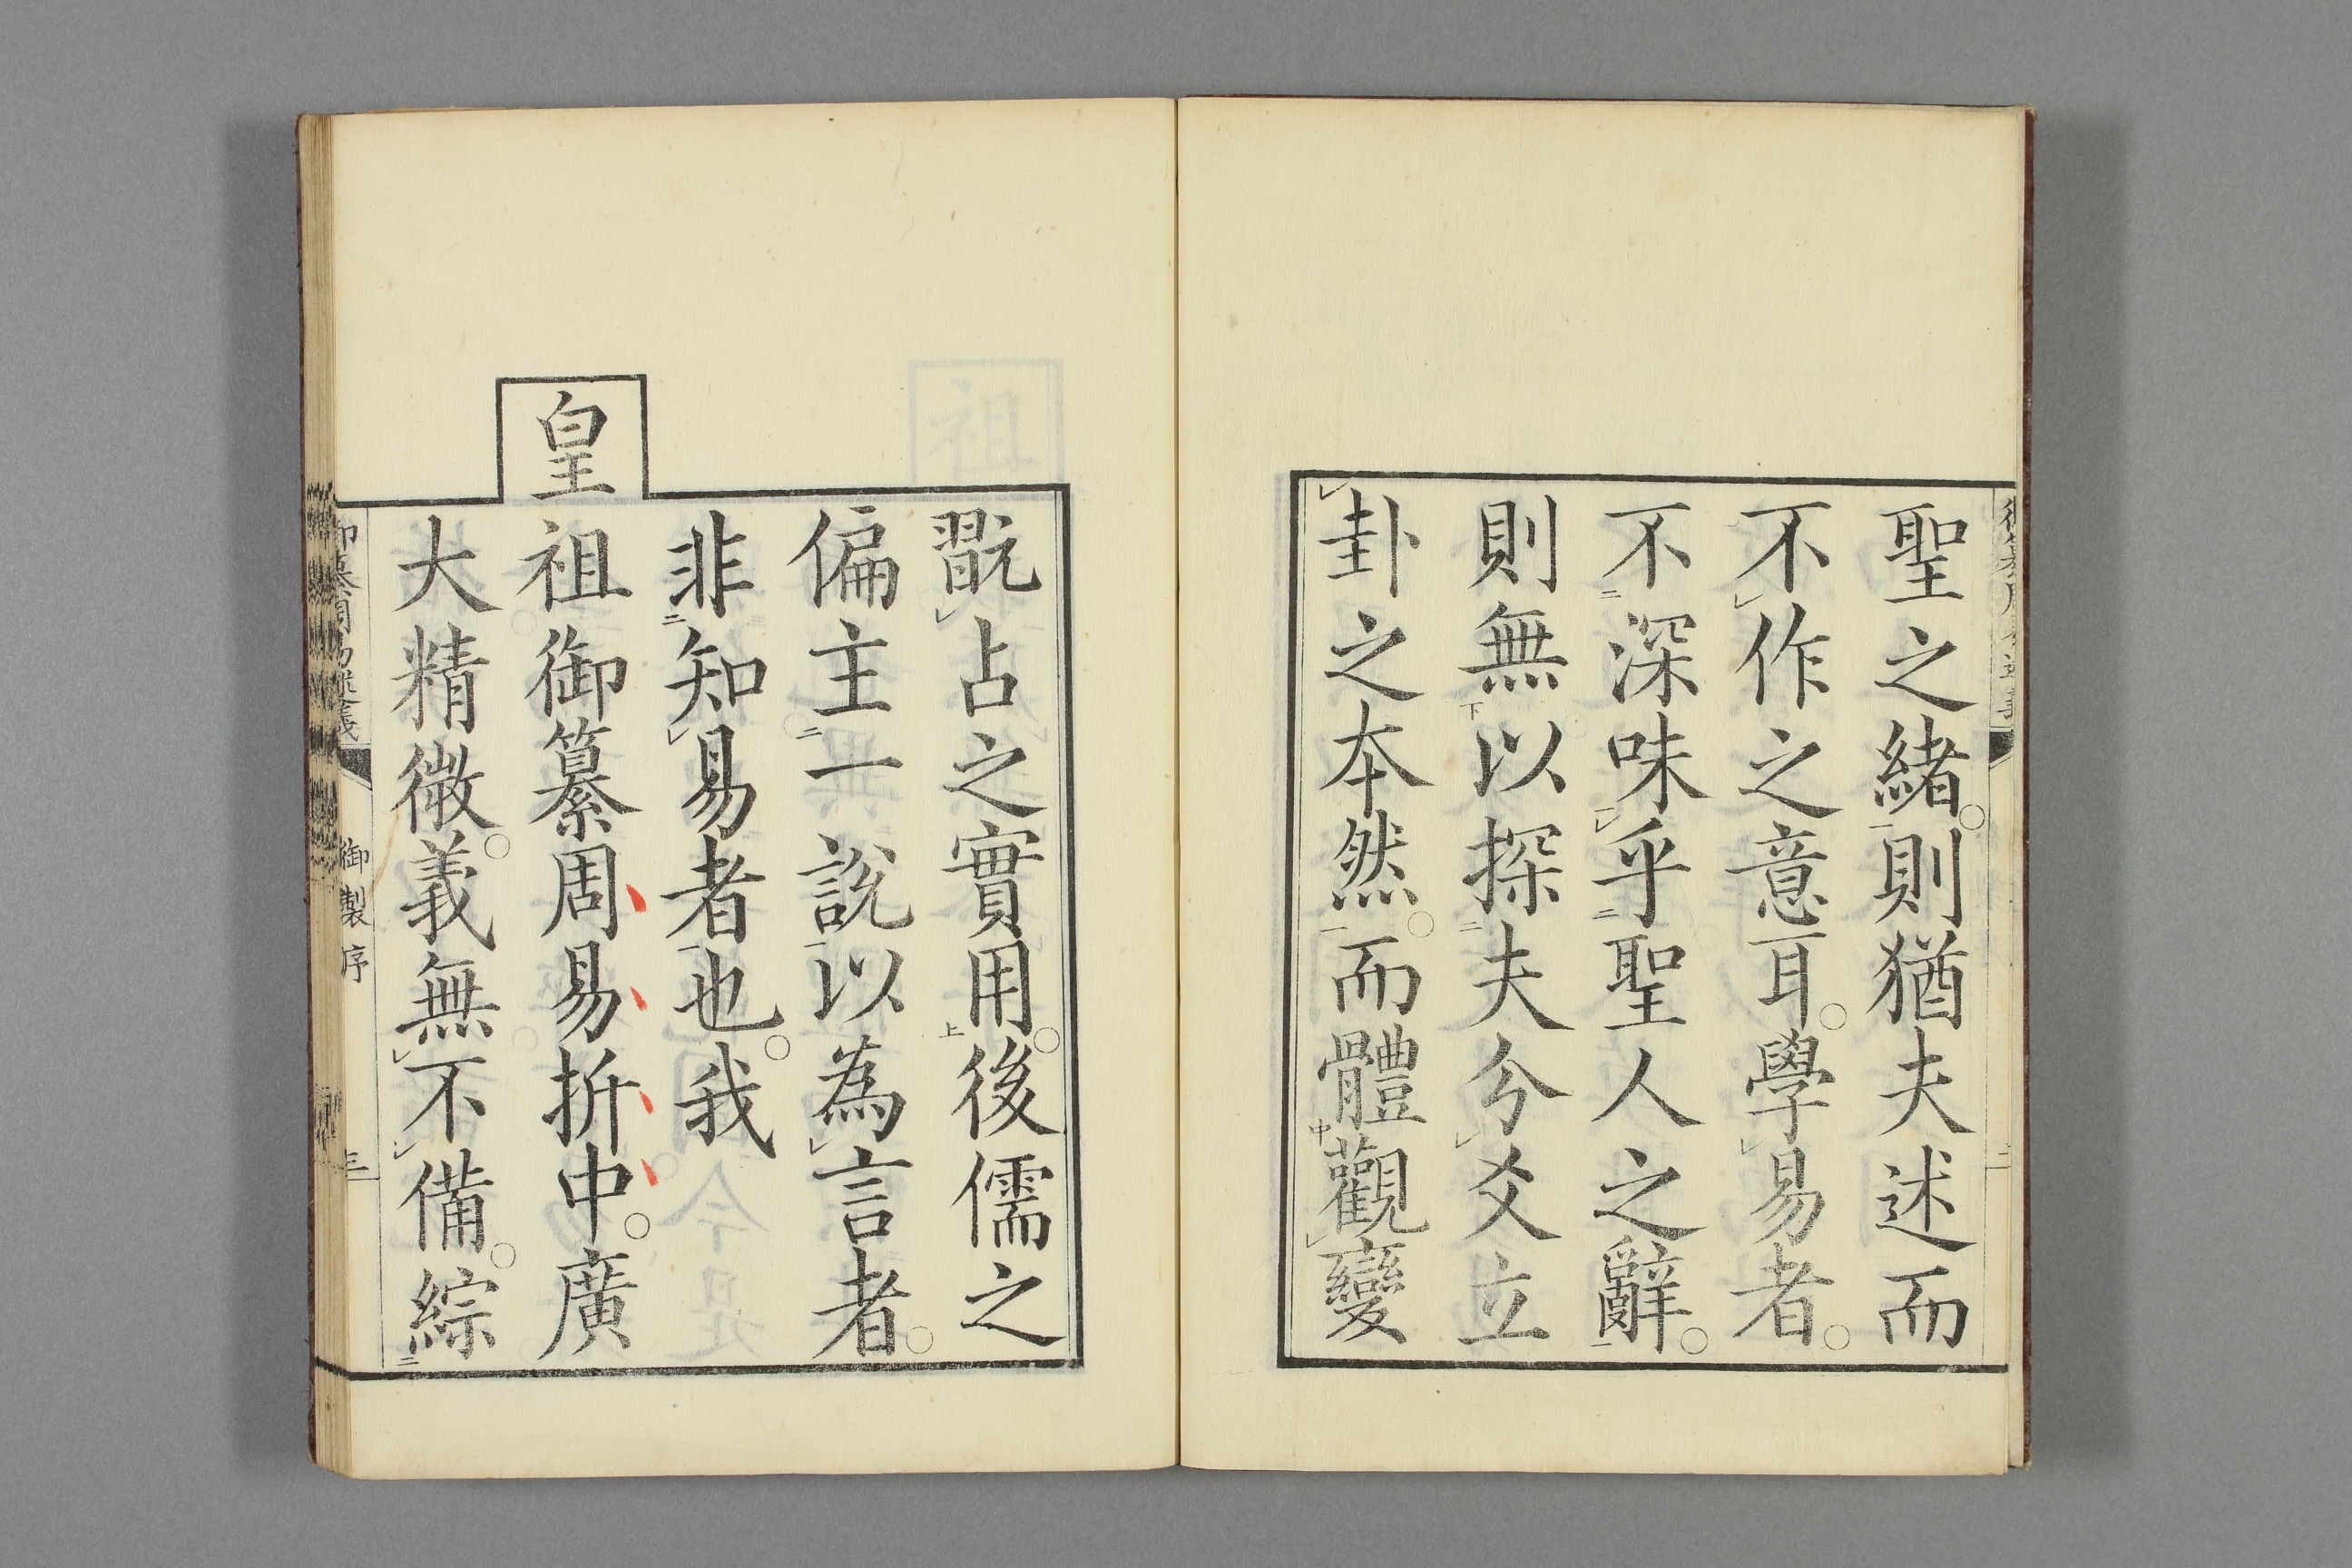 聖之緒則猶夫述而
不作之意耳學易者
不深味乎聖人之辭
則無以探夫分爻立
卦之本然而體觀變
翫占之實用後儒之
偏主一說以為言者
非知易者也我
皇祖御纂周易折中廣
大精微義無不備綜
御纂周易述義
御製序
三